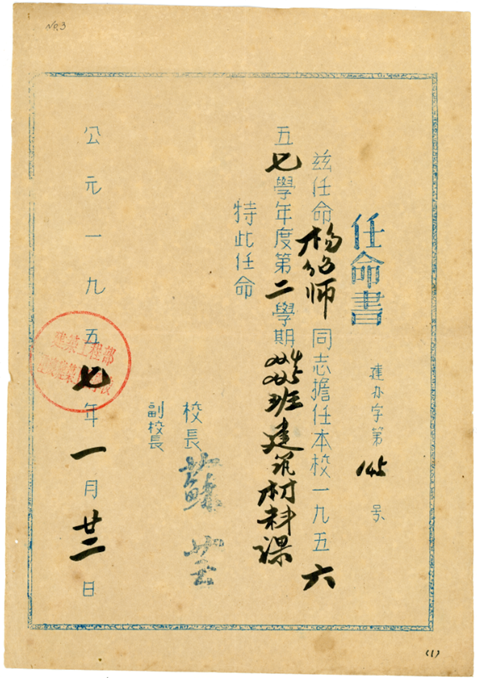 No.3
任命書
建办字第145号
兹任命杨公师同志擔任本校一九五六
五七學年度第二學期 班建筑材料课
特此任命
校長 蘇
副校長
公元一九五七年一月廿二日
建築工程部
(1)